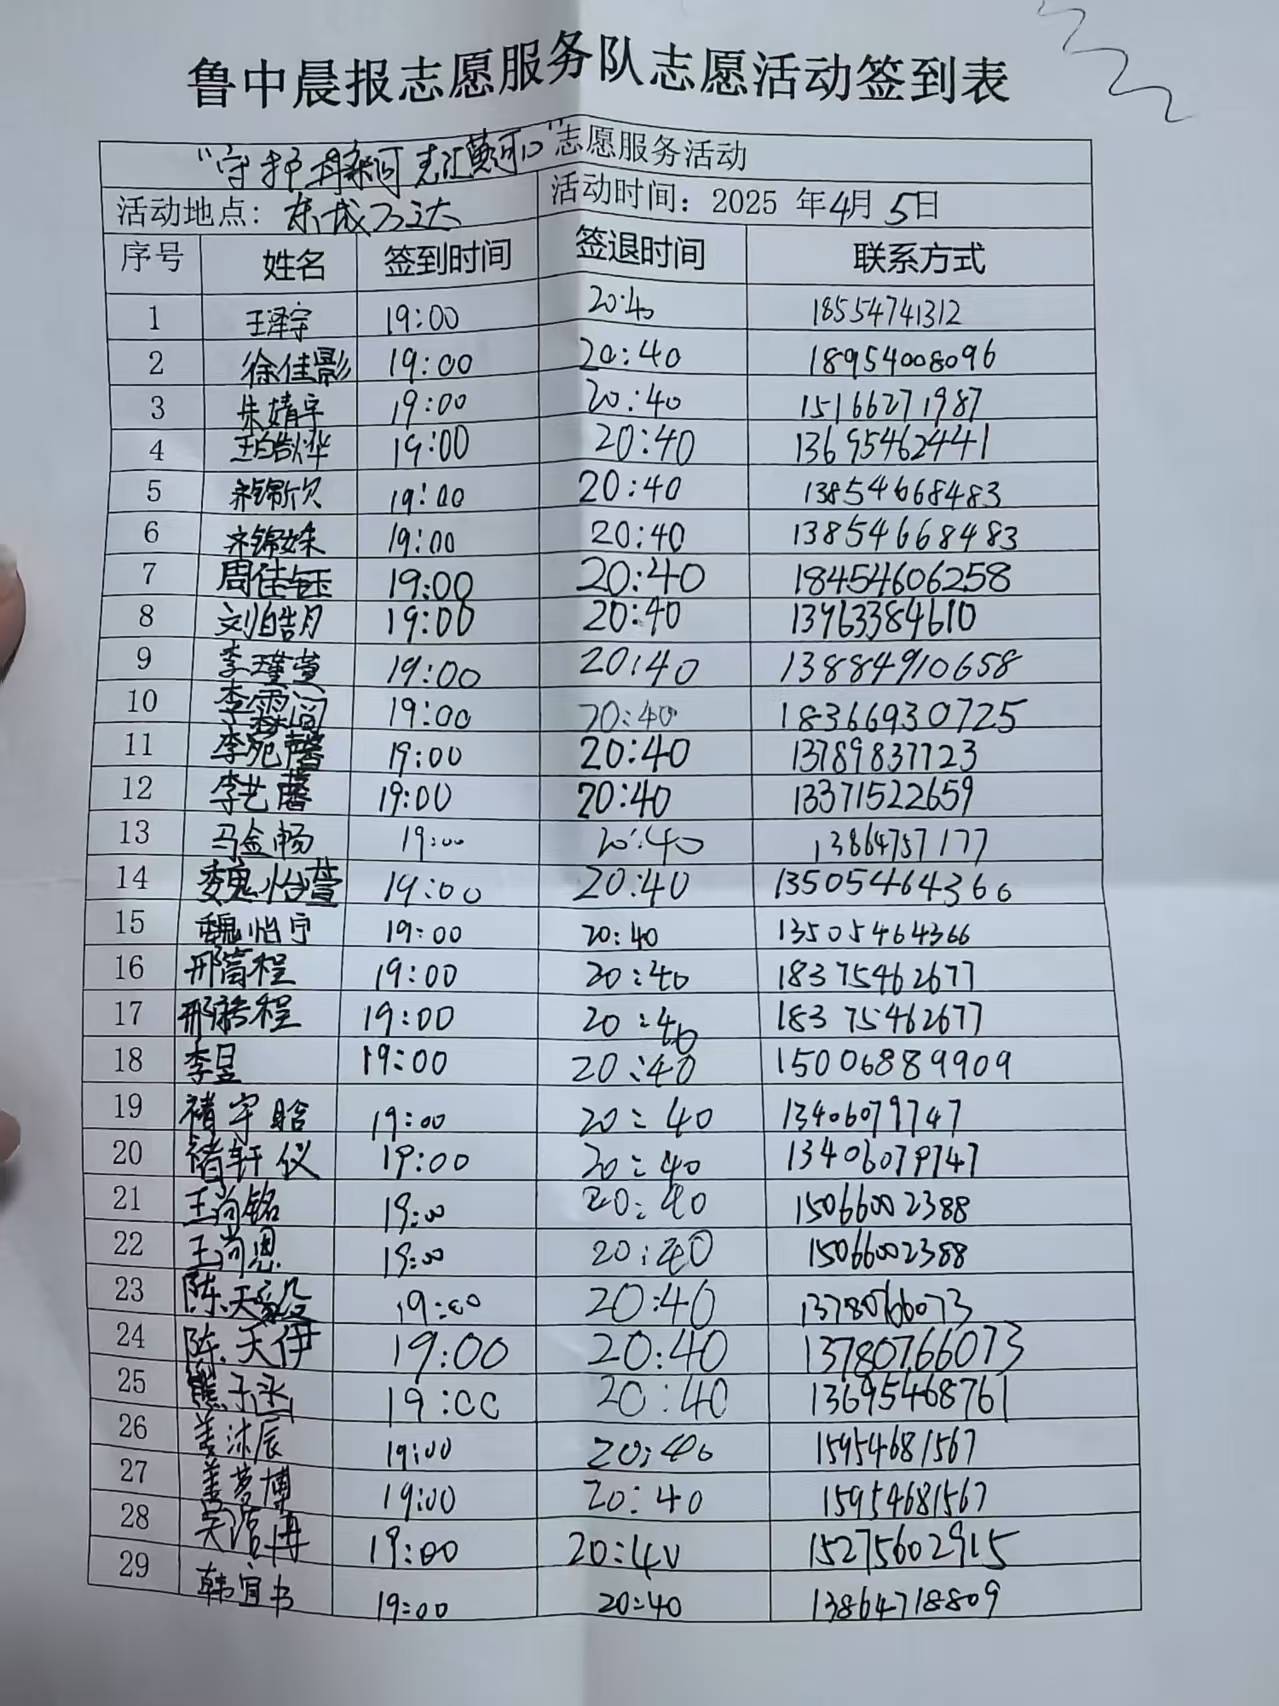 鲁中晨报志愿服务队志愿活动签到表
“守护母亲河 志汇黄河口”志愿服务活动
活动地点：东城万达 活动时间：2025 年4月5日
序号 姓名 签到时间 签退时间 联系方式
1 王泽宇 19:00 20:40 18554741312
2 徐佳影 19:00 20:40 18954008096
3 朱婧宇 19:00 20:40 15166271987
4 王皓烨 19:00 20:40 13695462441
5 19:00 20:40 13854668483
6 19:00 20:40 13854668483
7 周佳钰 19:00 20:40 18454606258
8 刘皓月 19:00 20:40 13963384610
9 李瑾萱 19:00 20:40 13884910658
10 19:00 20:40 18366930725
11 李宛馨 19:00 20:40 13789837723
12 李艺馨 19:00 20:40 13371522659
13 马金畅 19:00 20:40 13864757177
14 魏怡萱 19:00 20:40 13505464366
15 魏怡宁 19:00 20:40 13505464366
16 19:00 20:40 18375462677
17 19:00 20:40 18375462677
18 李昱 19:00 20:40 15006889909
19 褚宇晗 19:00 20:40 13406079747
20 褚轩仪 19:00 20:40 13406079747
21 王尚铭 19:00 20:40 15066002388
22 王尚恩 19:00 20:40 15066002388
23 陈天毅 19:00 20:40 13780766073
24 陈天伊 19:00 20:40 13780766073
25 熊子丞 19:00 20:40 13695468761
26 姜沐辰 19:00 20:40 15954681567
27 姜梦博 19:00 20:40 15954681567
28 19:00 20:40 15275602915
29 韩宜书 19:00 20:40 13864718809